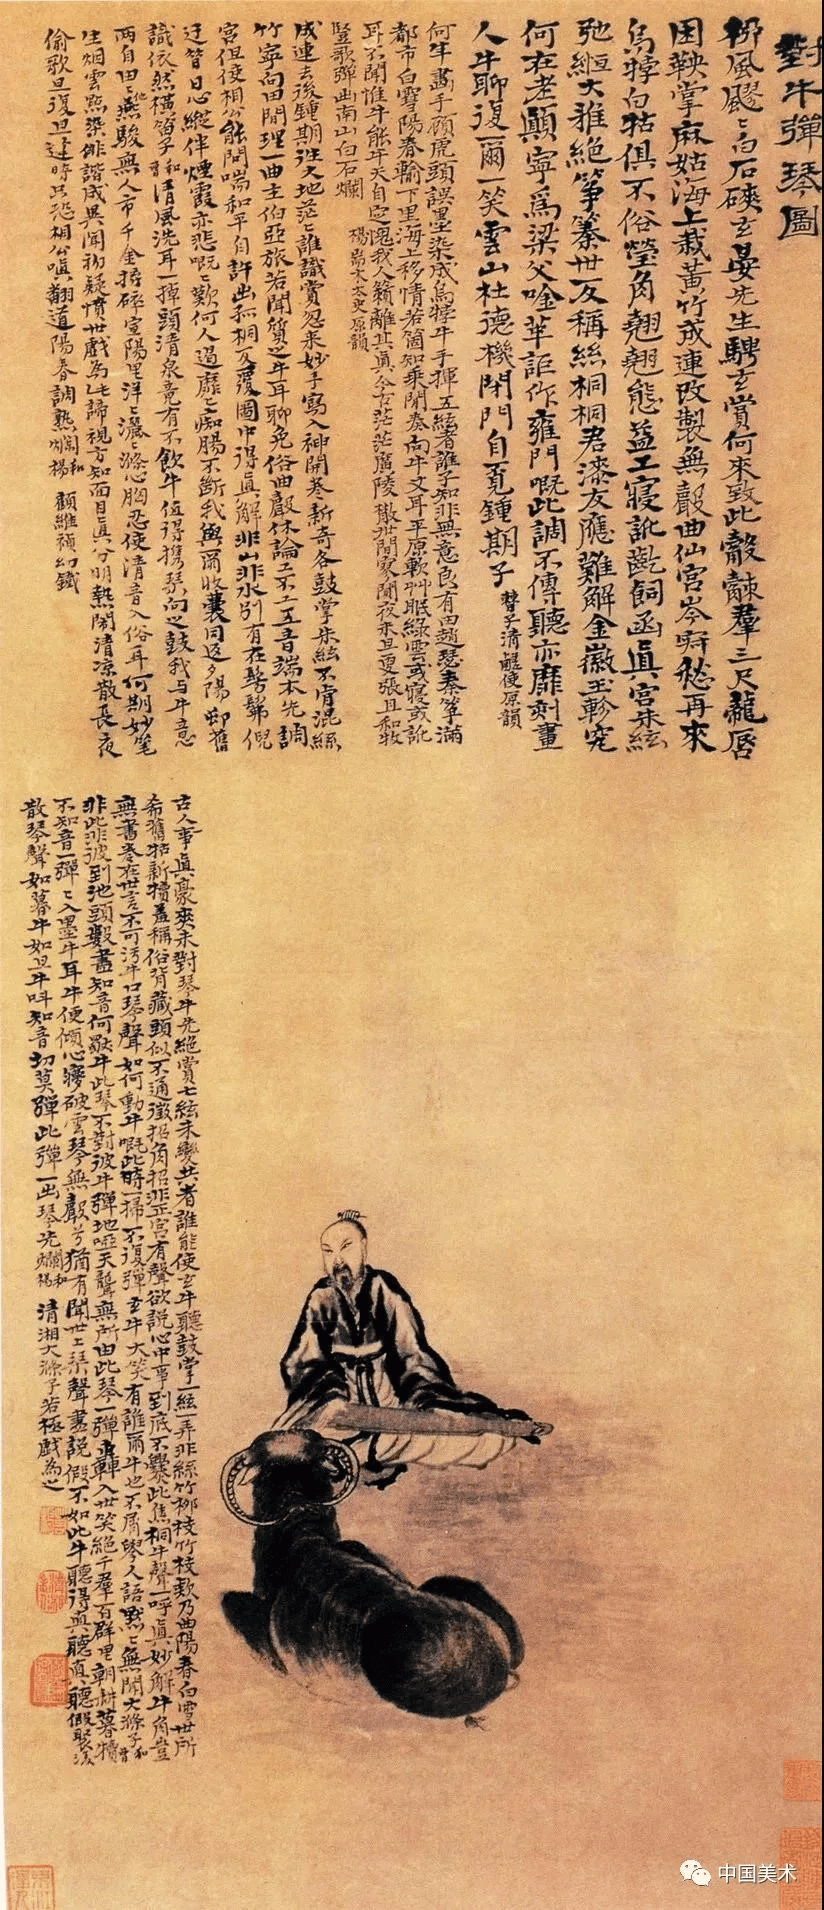 對牛彈琴圖
柳風颼颼白石磢玄晏先生騁玄賞何來致此觳觫羣三尺龍唇
困鞅掌麻姑海上栽黃竹成連改製無聲曲仙宮岑寂愁再來
烏犉白牯俱不俗瑩角翹翹態益工寢訛齕飼函真宮朱絃
弛縆大雅絕箏䈁世反稱絲桐桐君漆友應難解金徽玉軫究
何在老顛寧為梁父唫罕詎作雍門嘅此調不傳聽亦靡刻畫
人牛聊復爾一笑雲山杜德機閉門自覓鍾期子 子清鹺使原韻
何年畫手顧虎頭誤墨染成烏牸牛手揮五絃者誰子知非無意良有由趙瑟秦箏滿
都市白雪陽春輸下里海上移情若箇知乘閒奏向牛丈耳平原軟艸眠綠雲或寢或訛
耳不聞惟牛能牛天自定媿我人籟離其真今古茫茫廣陵散世間寥闃夜未旦更張且和牧
豎歌彈出南山白石爛 楊耑木太史原韻
成連去後鍾期往大地茫茫誰識賞忽来妙手寫入神開卷新奇各鼓掌朱絃不肯混絲
竹寧向田間理一曲主伯亞旅若聞質之牛耳聊免俗曲聲休論工不工五音端本先調
宮但使相公能問喘和平自許出孤桐反覆圖中得真解非山非水別有在髣髴倪
迂簪日心縱伴煙霞亦悲嘅嘅歎何人過靡靡痴腸不斷我與爾收囊同返夕陽邨舊
識依然橫笛子 和曹 清風洗耳一掉頭清泉竟有不飲牛值得携琴向之鼓我与牛意
兩自由燕駿無人市千金擲陽里洋洋灑灑滌心胸忍使清音入俗耳何期妙笔
生烟雲點染俳諧成異聞初疑憤世戲為此諦視方知面目真分明熱鬧清凉散長夜
偷歌旦復旦逢時只恐相公嗔翻道陽春調熟爛 和楊 顧維禎幻鐵
古人事真豪爽未對琴牛先絕賞七絃未變共者誰能使玄牛聽鼓掌一絃一弄非絲竹柳枝竹枝欵乃曲陽春白雪世所
希舊牯新犢盖稱俗背藏頭似不通徵招角招非正宮有聲欲說心中事到底不爨此焦桐牛聲一呼真妙解牛角豈
無書卷在世言不可污牛口琴聲如何動牛嘅此時一掃不復彈玄牛大笑有誰爾牛也不屑學人語默默無聞大滌子 和曹
非此非彼到池頭數盡知音何歇牛此琴不對彼牛彈地啞天聾無所由此琴一彈轟入世笑絕千羣百群里朝耕暮犢
不知音一彈彈入墨牛耳牛便傾心夢破雲琴無聲兮猶有聞世上琴聲盡說假不如此牛聽得真聽真聽假聚復
散琴聲如暮牛如旦牛叫知音切莫彈此彈一出琴先爛 和楊 清湘大滌子若極戲為之
中国美术